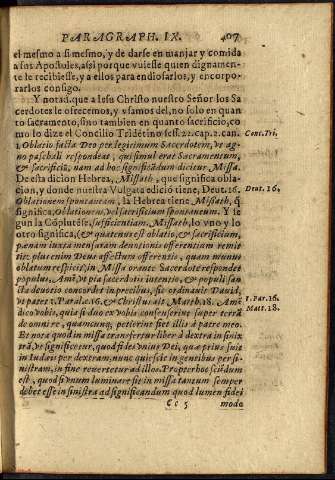 PARAGRAPH. IX. 407
el mesmo a si mesmo, y de darse en manjar y comida
a sus Apostoles, assi porque vuiesse quien dignamen-
te le recibiesse, y a ellos para endiosarlos, y encorpo-
rarlos consigo.
Y notad. que a Iesu Christo nuestro Señor los Sa
cerdotes le ofrecemos, y vsamos del, no solo en quan
to sacramento, sino tambien en quanto sacrificio, co
mo lo dize el Concilio Tridētino sess. 22. cap. 2. can.
Conc. Tri,
1. Oblatio facta Deo per legitimum Sacerdotem, vt ag-
no paschali respondeat, qui simul erat Sacramentum,
& sacrificiū, nam ad hoc significādum dicitur Missa.
De esta dicion Hebrea, Missath, que significa obla-
cion, y donde nuestra Vulgata edició tiene, Deut. 16.
Deut. 16,
Oblationem spontaneam, la Hebrea tiene Missath, q̃
significa, Oblationem, vel sacrificium spontaneum. Y se
gun la Cōplutēse, sufficientiam. Missath, lo vno y lo
otro significa, (& quatenus est oblatio, & sacrificium)
pœnam iuxta mensuram deuotionis offerentium remit
tit: plus enim Deus affectum offerentis, quam munus
oblatum respicit, in Missa orante Sacerdote respondet
populus. Amē, vt pia sacerdotis intentio, & populi san
cta deuotio concordet in precibus, sic ordinauit Dauid,
vt patet 1. Paralo. 16. & Christus ait Matth. 18. Amē
1. Par. 16.
dico vobis, quia si duo ex vobis consenserint super terrā
Matt. 18.
de omni re, quamcunq; petierint fiet illis à patre meo.
Et nota quòd in missa transfertur liber à dextra in sinix
trā, vt significetur, quod fides vnius Dei, quæ prius fuit
in Iudæis per dextram, nunc quiescit in gentibus per si-
nistram, in fine reuertetur ad illos. Propter hoc sciēdum
est, quod si vnum luminare sit in missa tantum semper
debet esse in sinistra ad significandum quod lumen fidei
Cc 5 modo